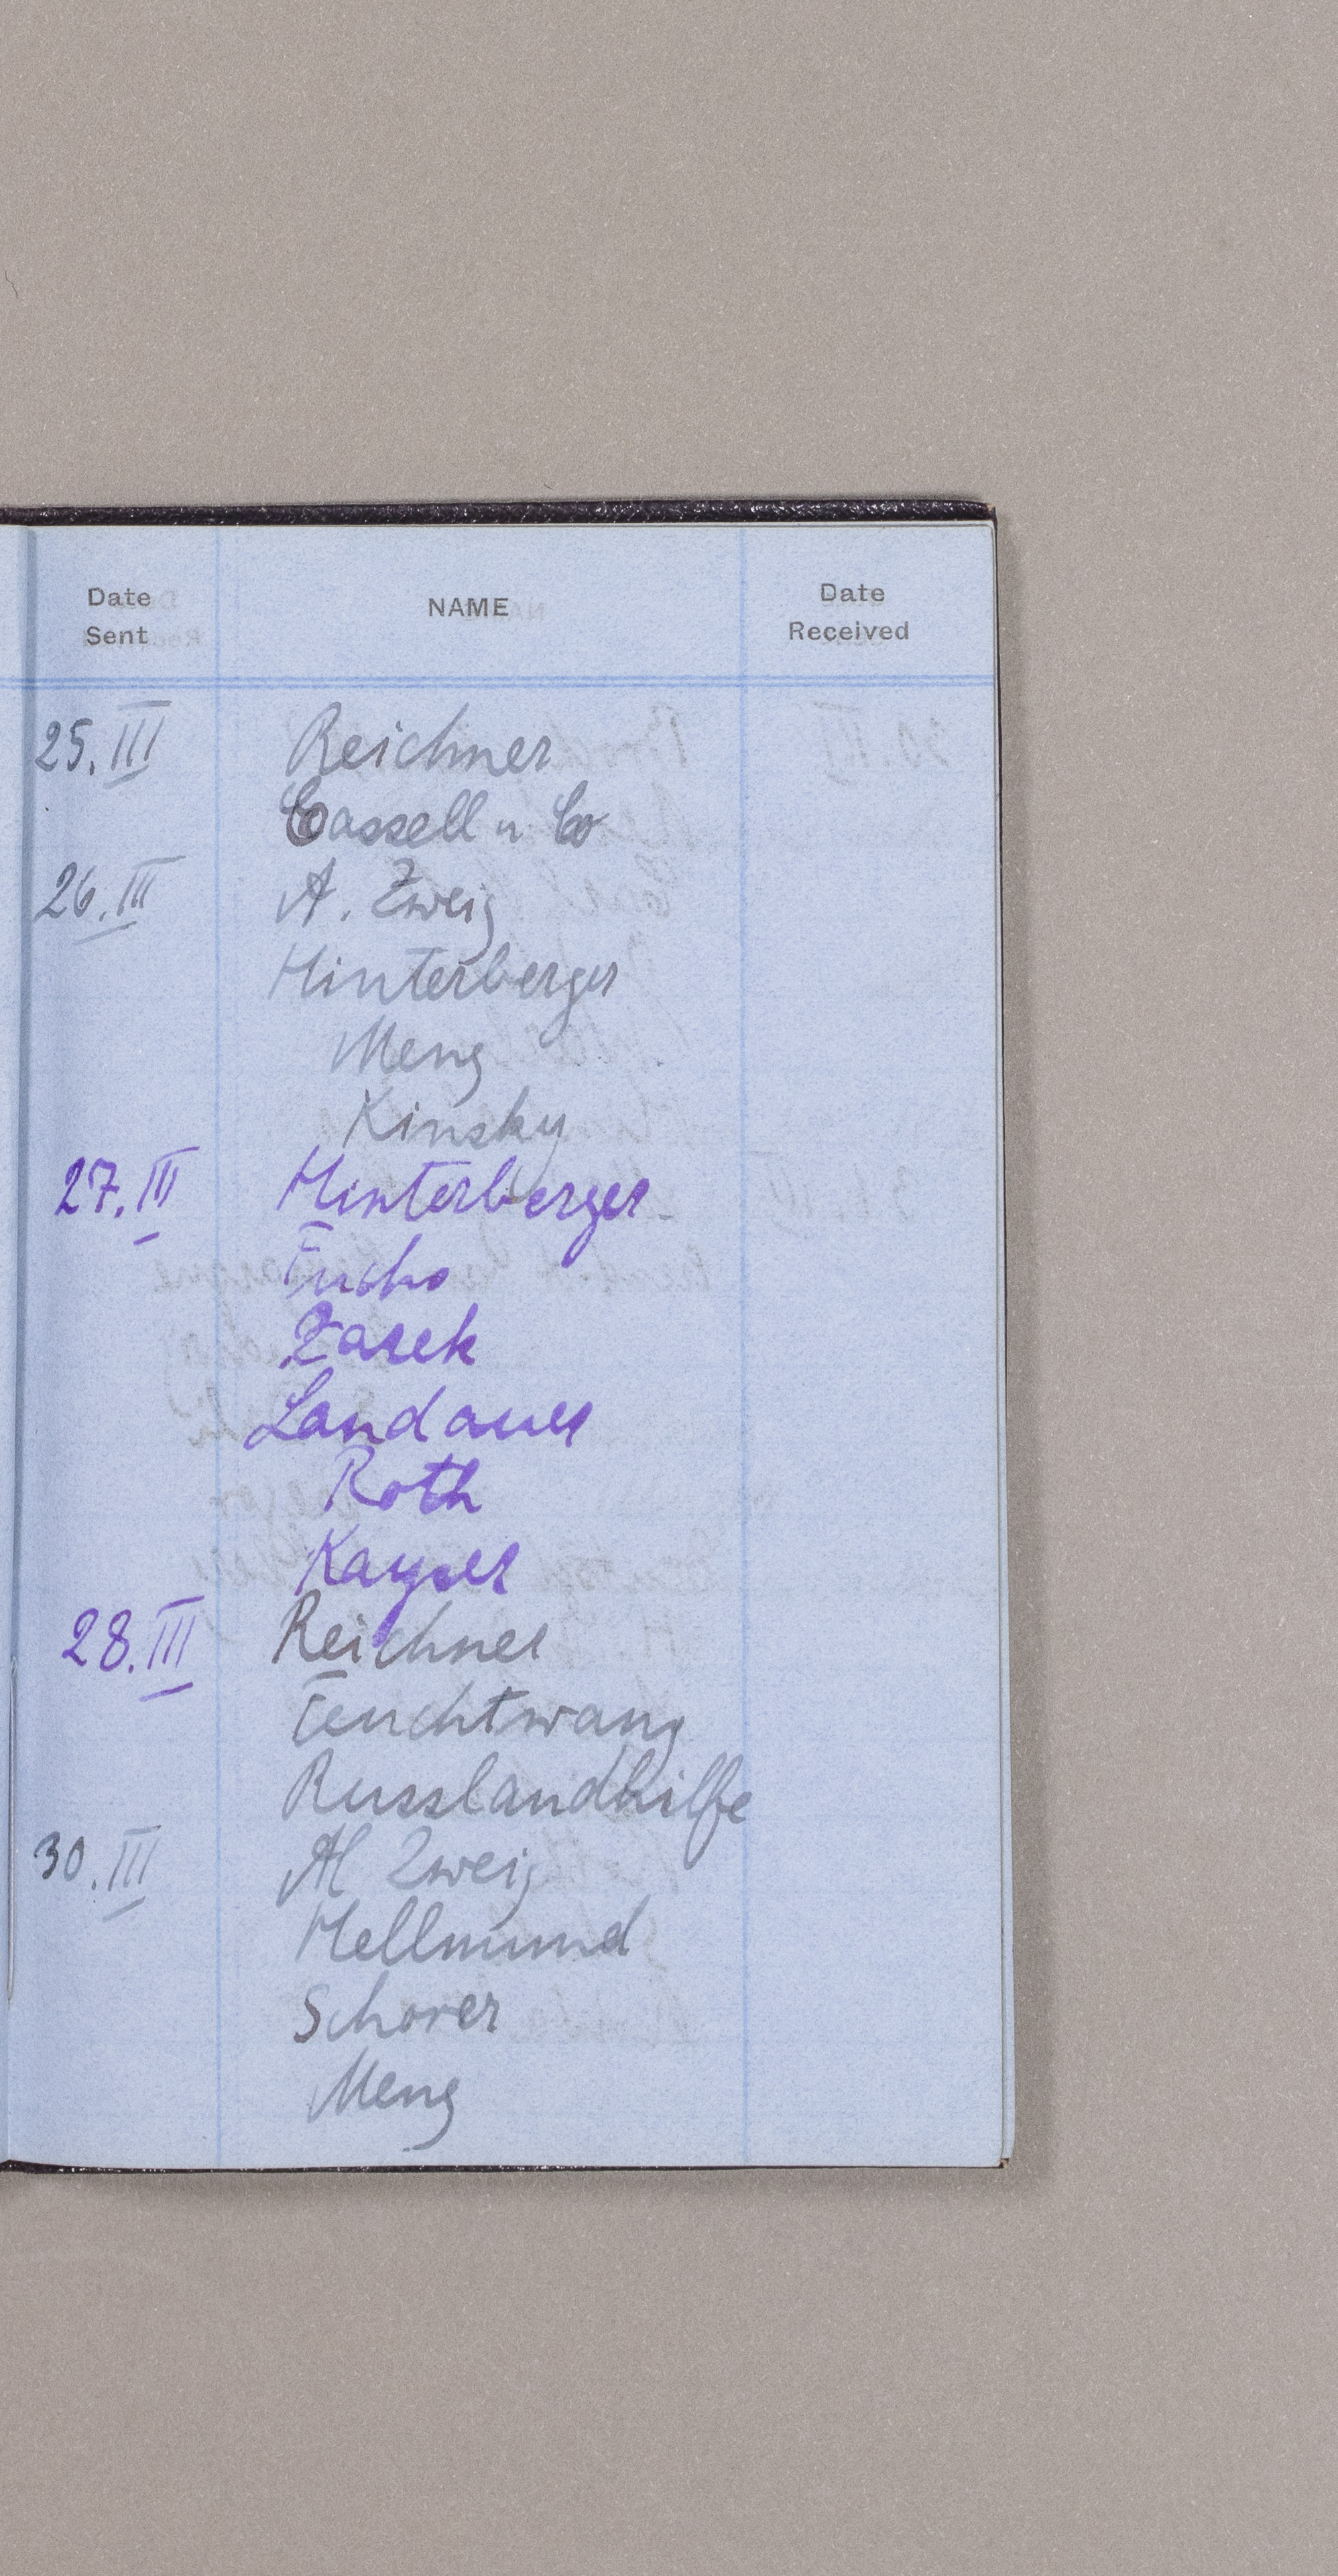 Date Sent NAME Date Received
25.III Reichner
Cassell u Co
26.III A. Zweig
Hinterberger
Meng
Kinsky
27.III Hinterberger
Fuchs
Zarek
Landauer
Roth
Kayser
28.III Reichner
Feuchtwang
Russlandhilfe
30.III Al Zweig
Hellmund
Schorer
Meng